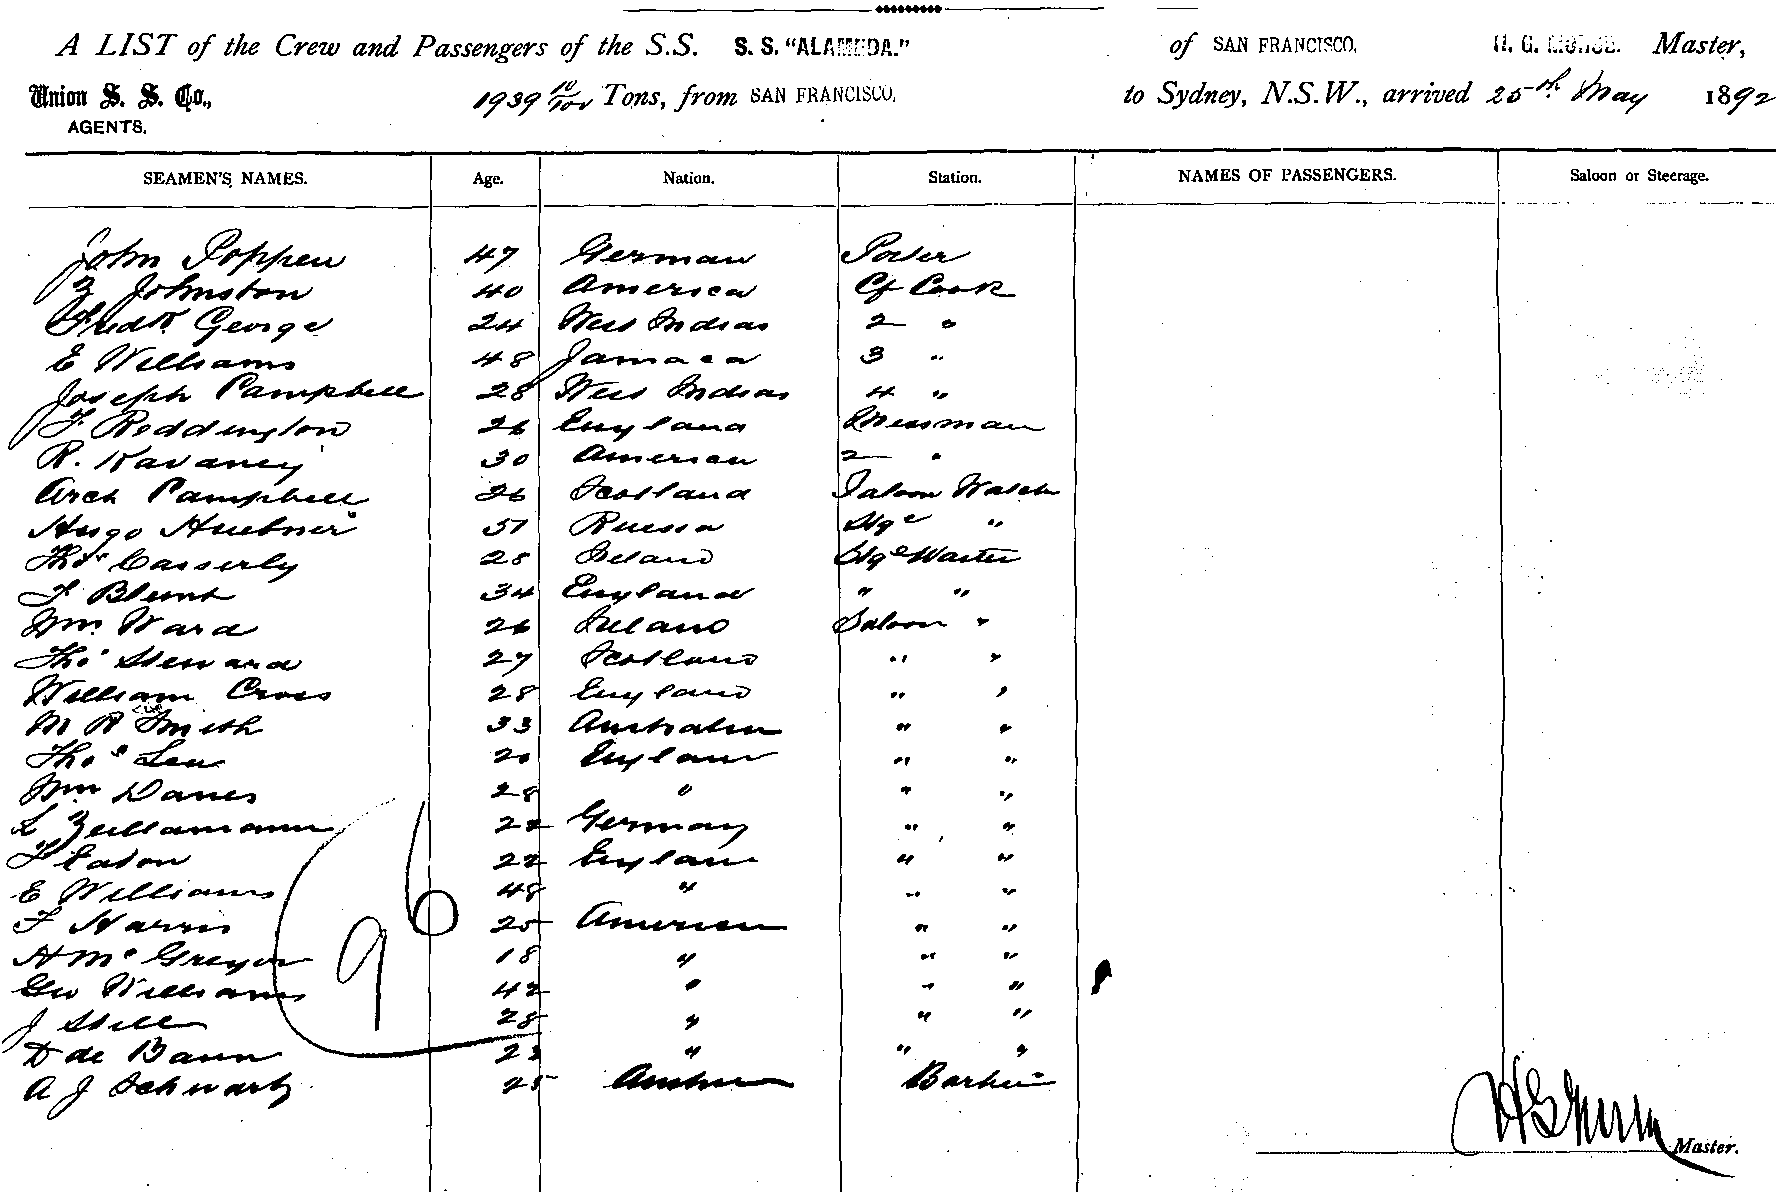 A LIST of the Crew and Passengers of the S.S. S. S. "ALAMEDA." of SAN FRANCISCO. H. G. MORSE. Master,
Union S. S. Co., 1939 10/100 Tons, from SAN FRANCISCO. to Sydney, N.S.W., arrived 25th May 1892
AGENTS.
SEAMEN'S NAMES. Age. Nation. Station. NAMES OF PASSENGERS. Saloon or Steerage.
John Poppen 47 German Porter
Z Johnston 40 America Cf Cook
Fredk George 24 West Indias 2 "
E Williams 48 Jamaca 3 "
Joseph Campbell 28 West Indias 4 "
F Reddington 26 England Messman
R. Kavaney 30 American 2 "
Arch Campbell 26 Scotland Saloon Watch
Hugo Huebner 51 Russia Stge "
Thos Casserly 28 Ireland Stge Waiter
F Blunt 34 England " "
Wm Ward 26 Ireland Saloon "
Thos Steward 27 Scotland " "
William Cross 28 England " "
M R Smith 33 Australian " "
Thos Lea 20 England " "
Wm Davies 28 " " "
L Zeilamann 22 Germany " "
F Eaton 22 England " "
E Williams 48 " " "
F Harris 25 American " "
H McGregor 18 " " "
Geo Williams 42 " " "
J Still 28 " " "
D de Baun 23 " " "
A J Schwartz 25 Barber
96
H G Morse Master.